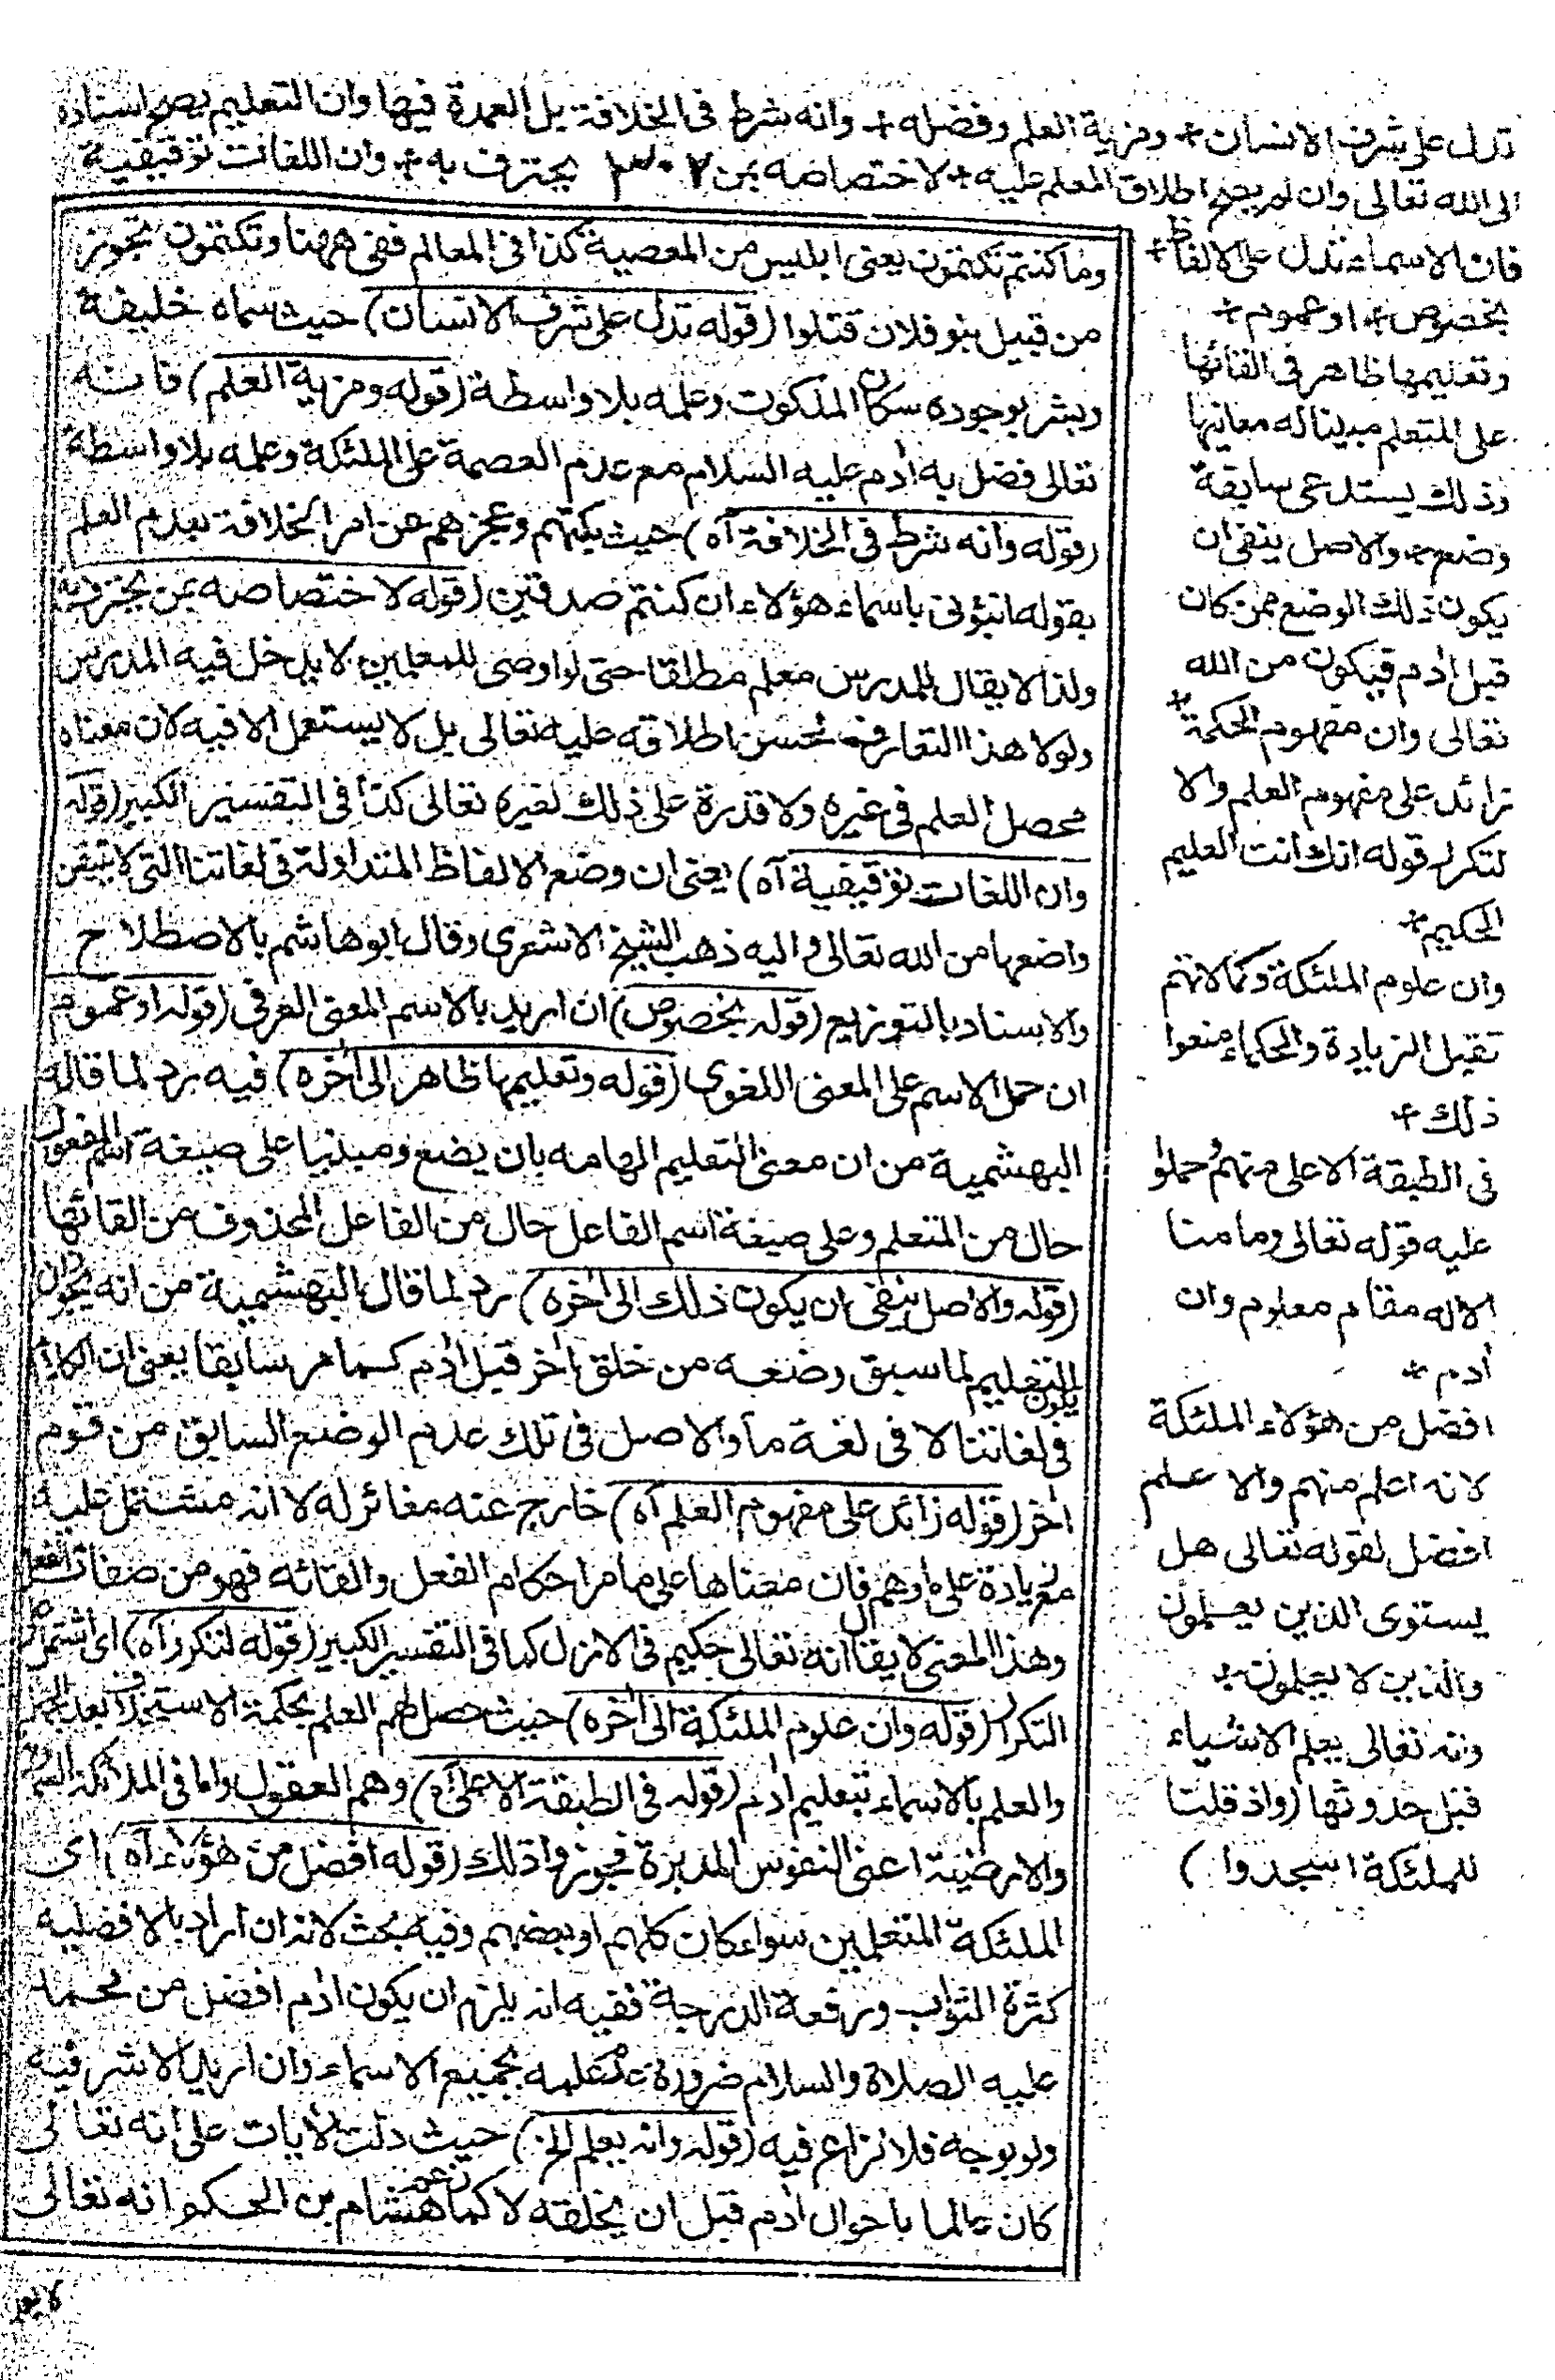 تدل على شرف الانسان + ومزية العلم وفضله + وانه شرط فى الخلافة بل العمدة فيها وان التعليم يصح اسناده
الى الله تعالى وان لم يصح اطلاق المعلم عليه + لاختصاصه بمن ٣٠٢ يحترف به + وان اللغات توقيفية
فان الاسماء تدل على الالفاظ +
بخصوص + او عموم +
وتعليمها ظاهر فى القائها
على المتعلم مبيناله معانيها
وذلك يستدعى سابقة
وضع + والاصل ينفى ان
يكون ذلك الوضع ممن كان
قبل اٰدم فيكون من الله
تعالى وان مفهوم الحكمة +
زائد على مفهوم العلم والا
لتكرر قوله انك انت العليم
الحكيم +
وان علوم الملئكة وكمالاتهم
تقبل الزيادة والحكماء منعوا
ذلك +
فى الطبقة الاعلى منهم وحملوا
عليه قوله تعالى وما منا
الا له مقام معلوم وان
اٰدم +
افضل من هؤلاء الملئكة
لانه اعلم منهم والا علم
افضل لقوله تعالى هل
يستوى الذين يعلمون
والذين لا يعلمون +
وانه تعالى يعلم الاشياء
قبل حدوثها (واذ قلنا
للملئكة اسجدوا)
وما كنتم تكتمون يعنى ابليس من المعصية كذا فى المعالم ففى ههنا وتكتمون تجوز
من قبيل بنو فلان قتلوا (قوله تدل على شرف الانسان) حيث سماه خليفة
وبشر بوجوده سكان الملكوت وعلمه بلا واسطة (قوله ومزية العلم) فانه
تعالى فضل به اٰدم عليه السلام مع عدم العصمة على الملئكة وعلمه بلا واسطة
(قوله وانه شرط فى الخلافة اٰه) حيث بكتهم وعجزهم عن امر الخلافة بعدم العلم
بقوله انبؤنى باسماء هؤلاء ان كنتم صدقين (قوله لاختصاصه بمن يحترف به
ولذا لا يقال للمدرس معلم مطلقا حتى لو اوصى للمعلمين لا يدخل فيه المدرس
ولولا هذا التعارف لحسن اطلاقه عليه تعالى بل لا يستعمل الا فيه لان معناه
محصل العلم فى غيره ولا قدرة على ذلك لغيره تعالى كذا فى التفسير الكبير (قوله
وان اللغات توقيفية اٰه) يعنى ان وضع الالفاظ المتداولة فى لغاتنا التى لا تيقن
واضعها من الله تعالى واليه ذهب الشيخ الاشعرى وقال ابو هاشم بالاصطلاح
والاستاد بالتوزيع (قوله بخصوص) ان اريد بالاسم المعنى العرفى (قوله او عموم
ان حمل الاسم على المعنى اللغوى (قوله وتعليمها ظاهر الى اٰخره) فيه رد لما قاله
البهشمية من ان معنى التعليم الهامه بان يضع ومبينا على صيغة اسم المفعول
حال من المتعلم وعلى صيغة اسم الفاعل حال من الفاعل المحذوف من القائها
(قوله والاصل ينفى ان يكون ذلك الى اٰخره) رد لما قال البهشمية من انه يجوز ان
يكون التعليم لما سبق وضعه من خلق اٰخر قبل اٰدم كما مر سابقا يعنى ان الكلام
فى لغاتنا لا فى لغة ما والاصل فى تلك عدم الوضع السابق من قوم
اٰخر (قوله زائد على مفهوم العلم اٰه) خارج عنه مغائر له لا انه مشتمل عليه
مع زيادة على ما وهم فان معناها على ما مر احكام الفعل واتقانه فهو من صفات الفعل
وهذا المعنى لا يقال انه تعالى حكيم فى الازل كما فى التفسير الكبير (قوله لتكرر اٰه) اى اشتمل
التكرار (قوله وان علوم الملئكة الى اٰخره) حيث حصل لهم العلم بحكمة الاستخلاف بعد الجهل
والعلم بالاسماء بتعليم اٰدم (قوله فى الطبقة الاعلى اٰه) وهم العقول واما فى الملائكة
والارضية اعنى النفوس المدبرة فجوزوا ذلك (قوله افضل من هؤلاء اٰه) اى
الملئكة المتعلمين سواء كان كلهم او بعضهم وفيه بحث لانه ان اراد بالافضلية
كثرة الثواب ورفعة الدرجة ففيه انه يلزم ان يكون اٰدم افضل من محمد
عليه الصلاة والسلام ضرورة عدم علمه بجميع الاسماء وان اريد الاشرفية
ولو بوجه فلا نزاع فيه (قوله وانه يعلم الخ) حيث دلت الاٰيات على انه تعالى
كان عالما باحوال اٰدم قبل ان يخلقه لا كما زعم هشام بن الحكم وانه تعالى
لا يعلم